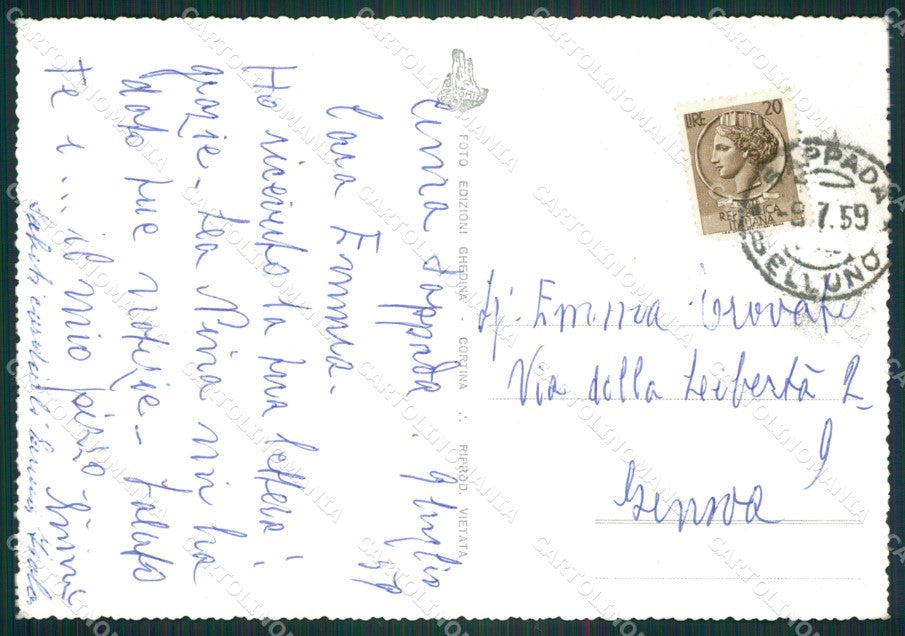 Cima Sappada. 9 luglio
59
Cara Emma.
Ho ricevuto la tua lettera!
grazie - Lea Piria mi ha
dato tue notizie - Saluto
te e ... il mio pezzo
Saluti
FOTO EDIZIONI GHEDINA - CORTINA ∴ RIPROD. VIETATA
LIRE 20
REPUBBLICA
ITALIANA
SAPPADA
9.7.59
BELLUNO
Sig. Emma
Via della Libertà 2
Genova
CARTOLINOMANIA